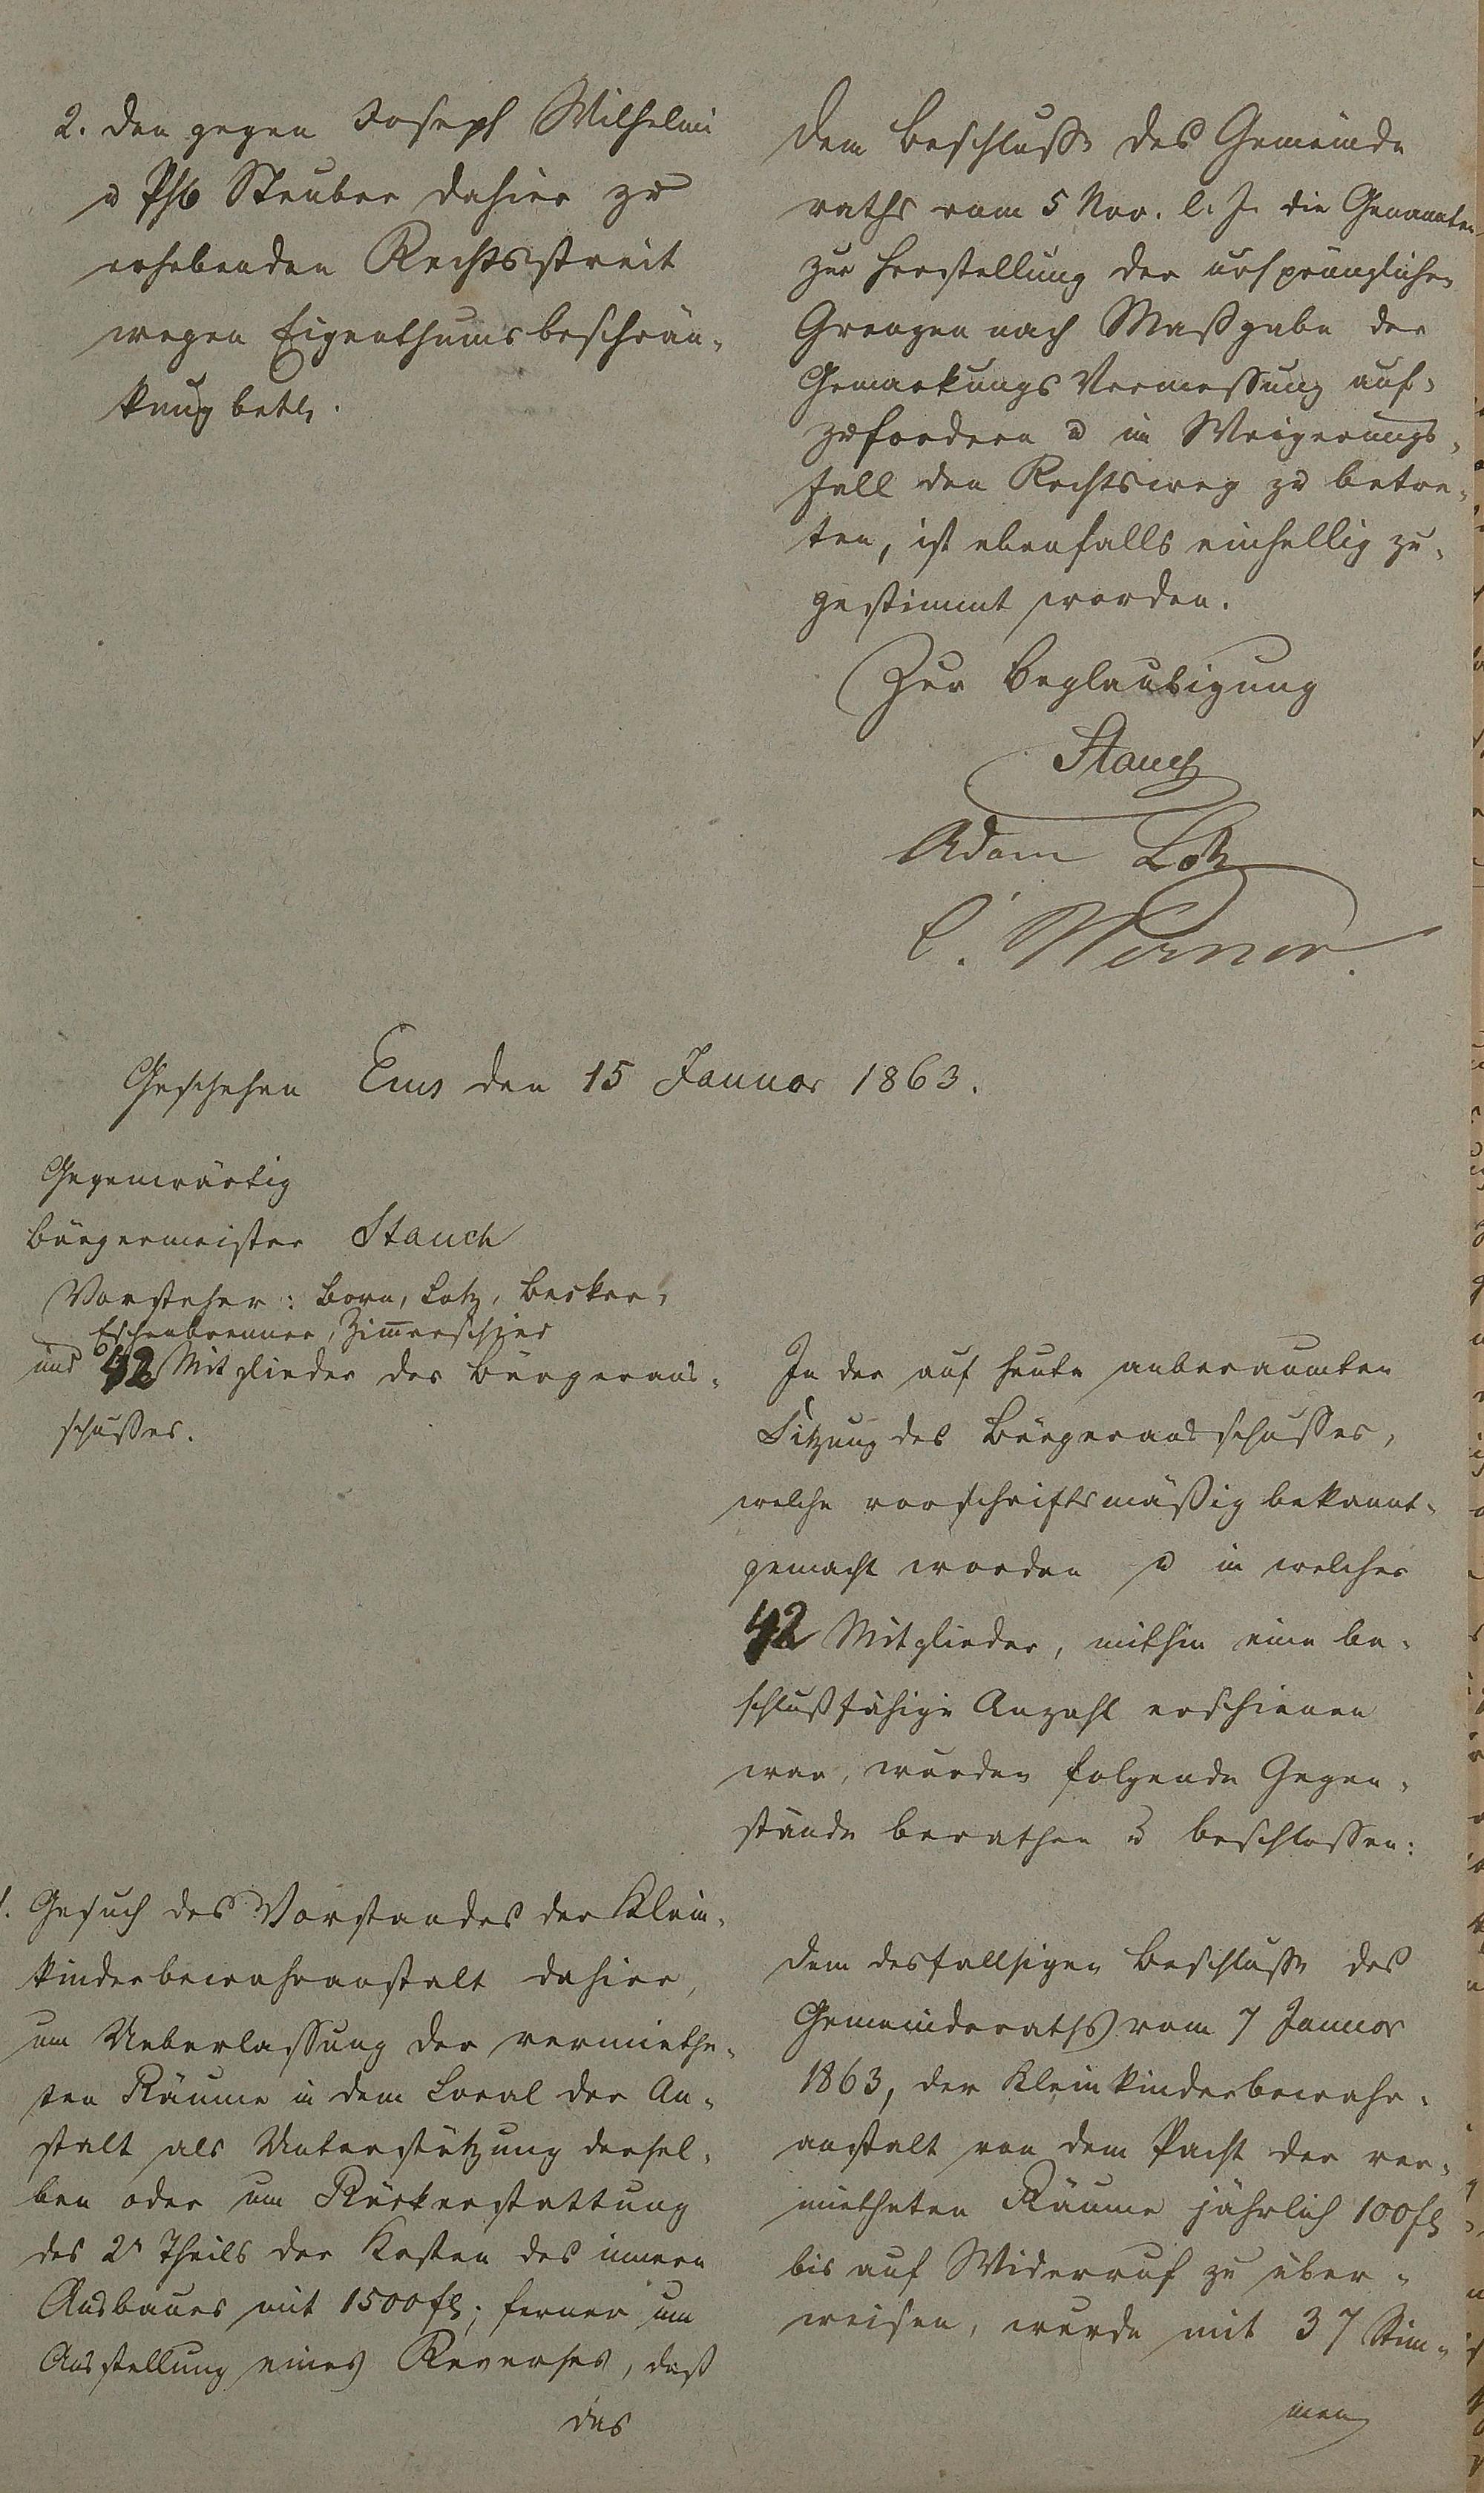 2. den gegen Joseph Wilhelmi
u Phb Steuber dahier zu
erhebenden Rechtsstreit
wegen Eigenthumsbeschrän-
kung betr.
Dem Beschluße des Gemeinde
raths vom 5 Nov. l. J. die Genannten
zur Herstellung der ursprünglichen
Grenzen nach Maßgabe der
Gemarkungs Vermessung auf-
zufordern u im Weigerungs-
fall den Rechtsweg zu betre-
ten, ist ebenfalls einhellig zu-
gestimmt worden.
Zur Beglaubigung
Stauch
Adam Lotz
C. Werner.
Geschehen Ems den 15 Januar 1863.
Gegenwärtig
Bürgermeister Stauch
Vorsteher: Born, Lotz, Becker,
Eschenbrenner, Zimerschied
und 42 Mitglieder des Bürgeraus-
schußes.
In der auf heute anberaumten
Sitzung des Bürgerausschusses,
welche vorschriftsmäßig bekannt-
gemacht worden u in welcher
42 Mitglieder, mithin eine be-
schlußfähige Anzahl erschienen
war, wurden folgende Gegen-
stände berathen u beschlossen:
1. Gesuch des Vorstandes der Klein-
kinderbewahranstalt dahier,
um Ueberlassung der vermiethe-
ten Räume in dem Local der An-
stalt als Unterstützung dersel-
ben oder um Rückerstattung
des 2n Theils der Kosten des innern
Ausbaues mit 1500 fl; ferner um
Ausstellung eines Reverses, daß
das
Dem desfallsigen Beschluße des
Gemeinderaths vom 7 Januar
1863, der Kleinkinderbewahr-
anstalt von dem Pacht der ver-
mietheten Räume jährlich 100 fl
bis auf Widerruf zu über-
weisen, wurde mit 37 Stim-
men